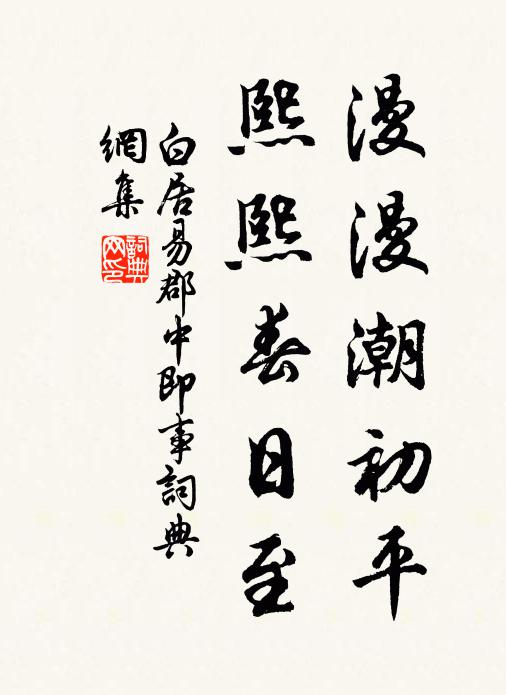 漫漫潮初平
熙熙春日至
白居易郡中即事詞典
網集
詞典
网印